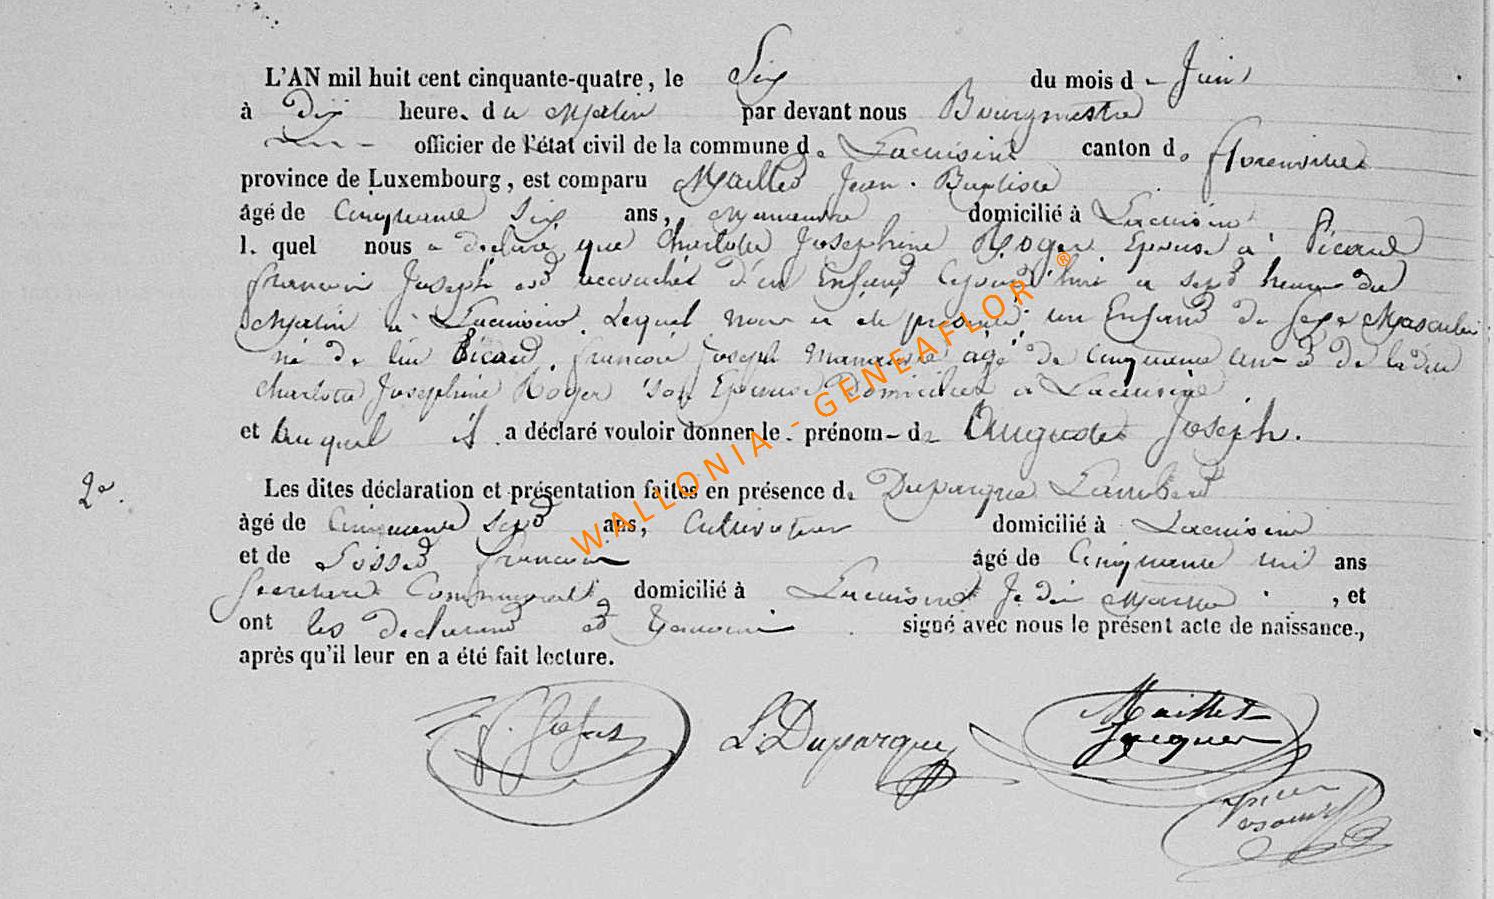 L'AN mil huit cent cinquante-quatre, le Six du mois d - Juin
à dix heure. du Matin par devant nous Bourgmestre
officier de l'état civil de la commune d. Lacuisine canton d. florenville
province de Luxembourg, est comparu Maillet Jean. Baptiste
âgé de Cinquante Six ans, Manoeuvre domicilié à Lacuisine
l. quel nous a déclaré que Charlotte Josephine Roger Epouse a Picard
francois Joseph est accouchée d'un Enfant Cejourd'hui a sept heure du
Matin a Lacuisine, Lequel nous a ete presenté, un Enfant de Sexe Masculin
né de lui Picard, francois Joseph Manoeuvre agé de Cinquante ans & de ladite
Charlotte Josephine Roger son Epouse Domiciliés a Lacuisine
et auquel il a déclaré vouloir donner le. prénom- de Auguste Joseph.
2e.
Les dites déclaration et présentation faites en présence d. Duparque Lambert
âgé de Cinquante sept ans, Cultivateur domicilié à Lacuisine
et de francois âgé de Cinquante un ans
Secretaire Communal domicilié à Lacuisine , et
ont les declarant et temoin signé avec nous le présent acte de naissance.,
après qu'il leur en a été fait lecture.
L. Duparque Maillet
WALLONIA - GENEAFLOR ®